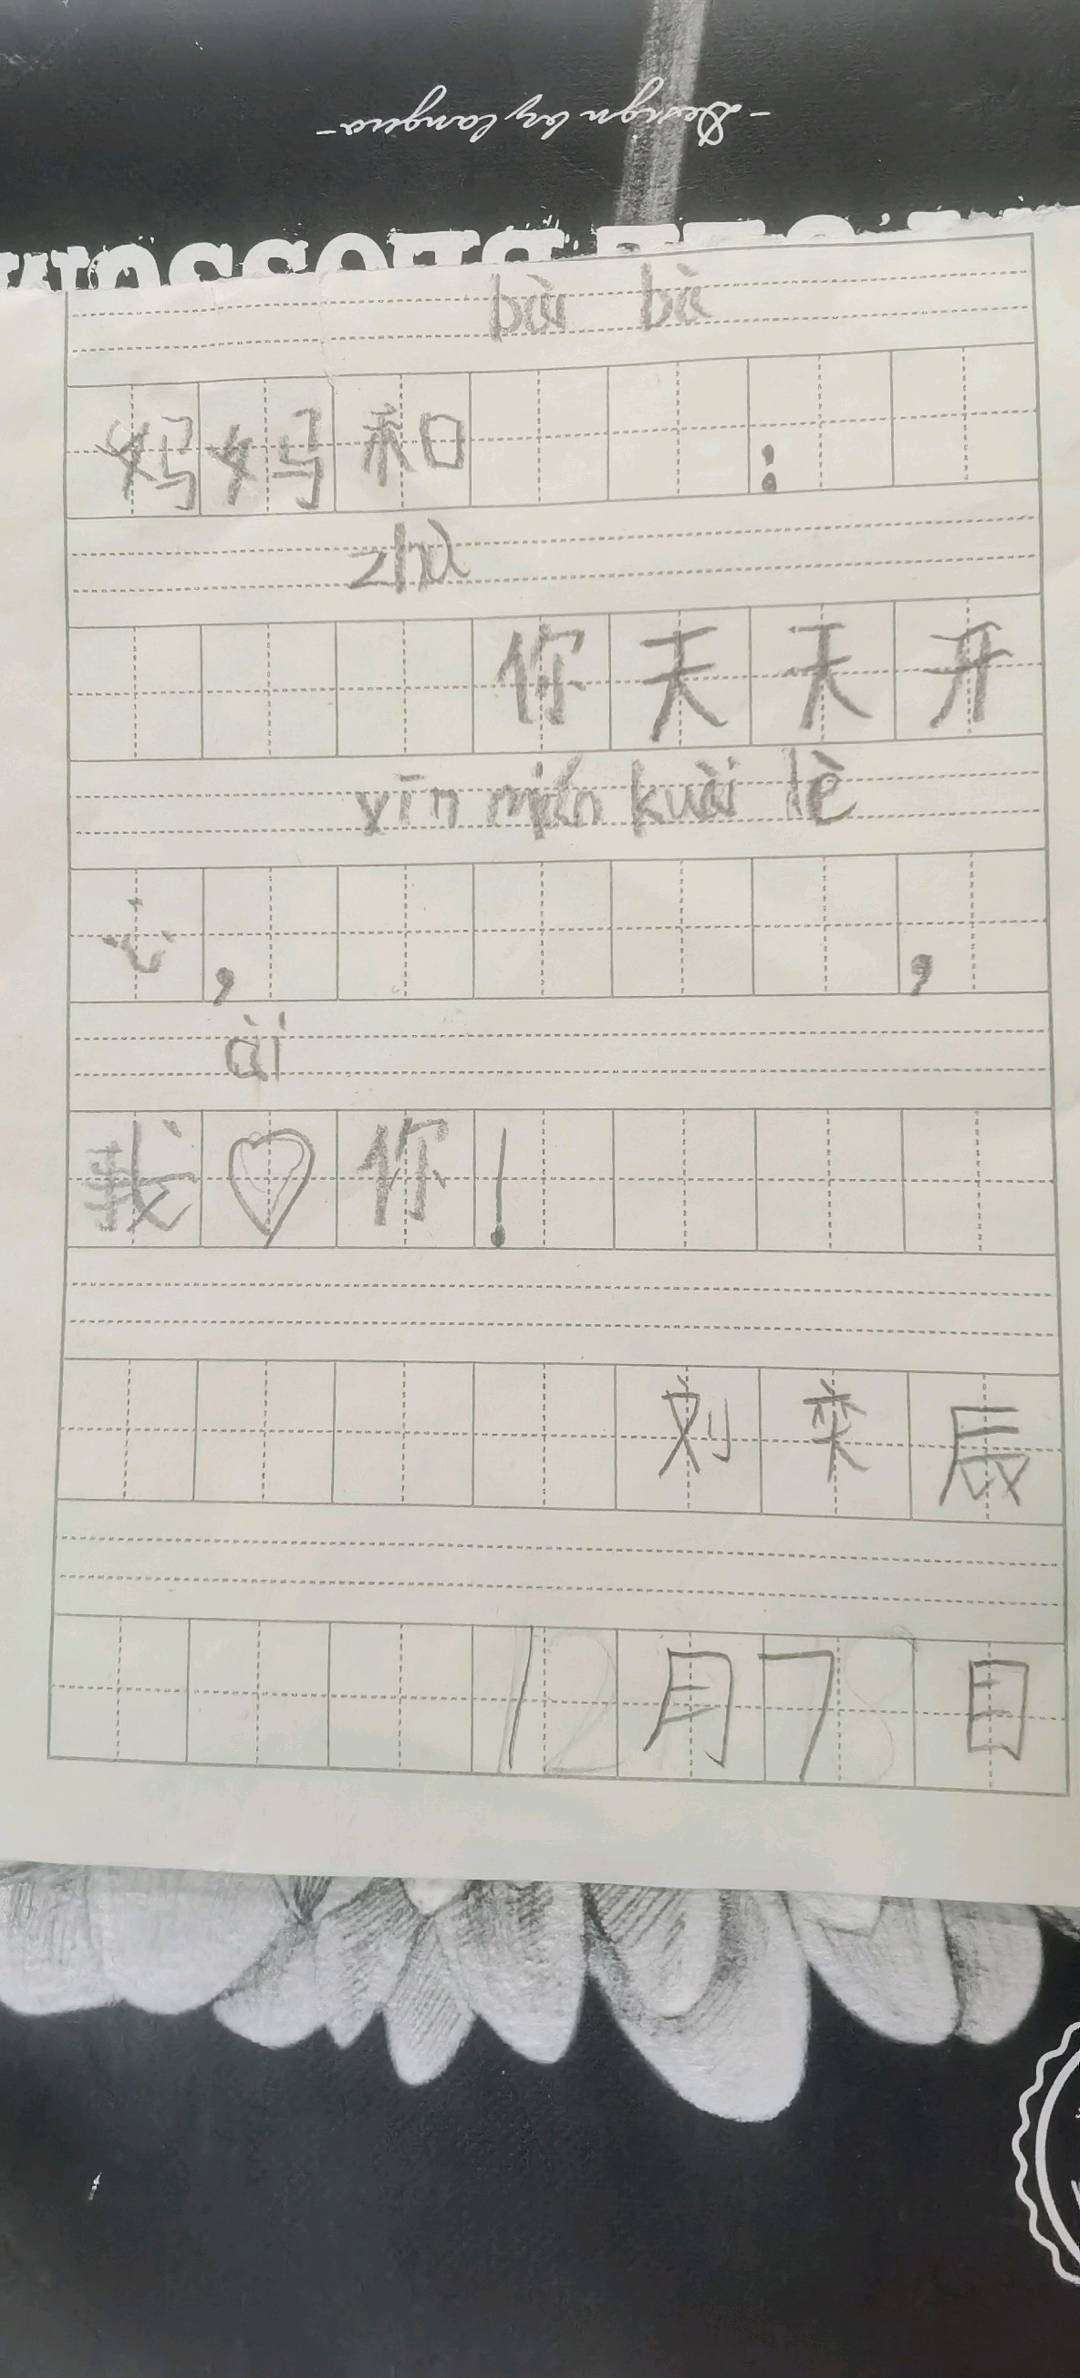 -Design by langua-
bài bà
妈妈和:
zhù
你天天开
xīn mián kuài lè
心,,
ài
我♡你!
刘奕辰
1月7日